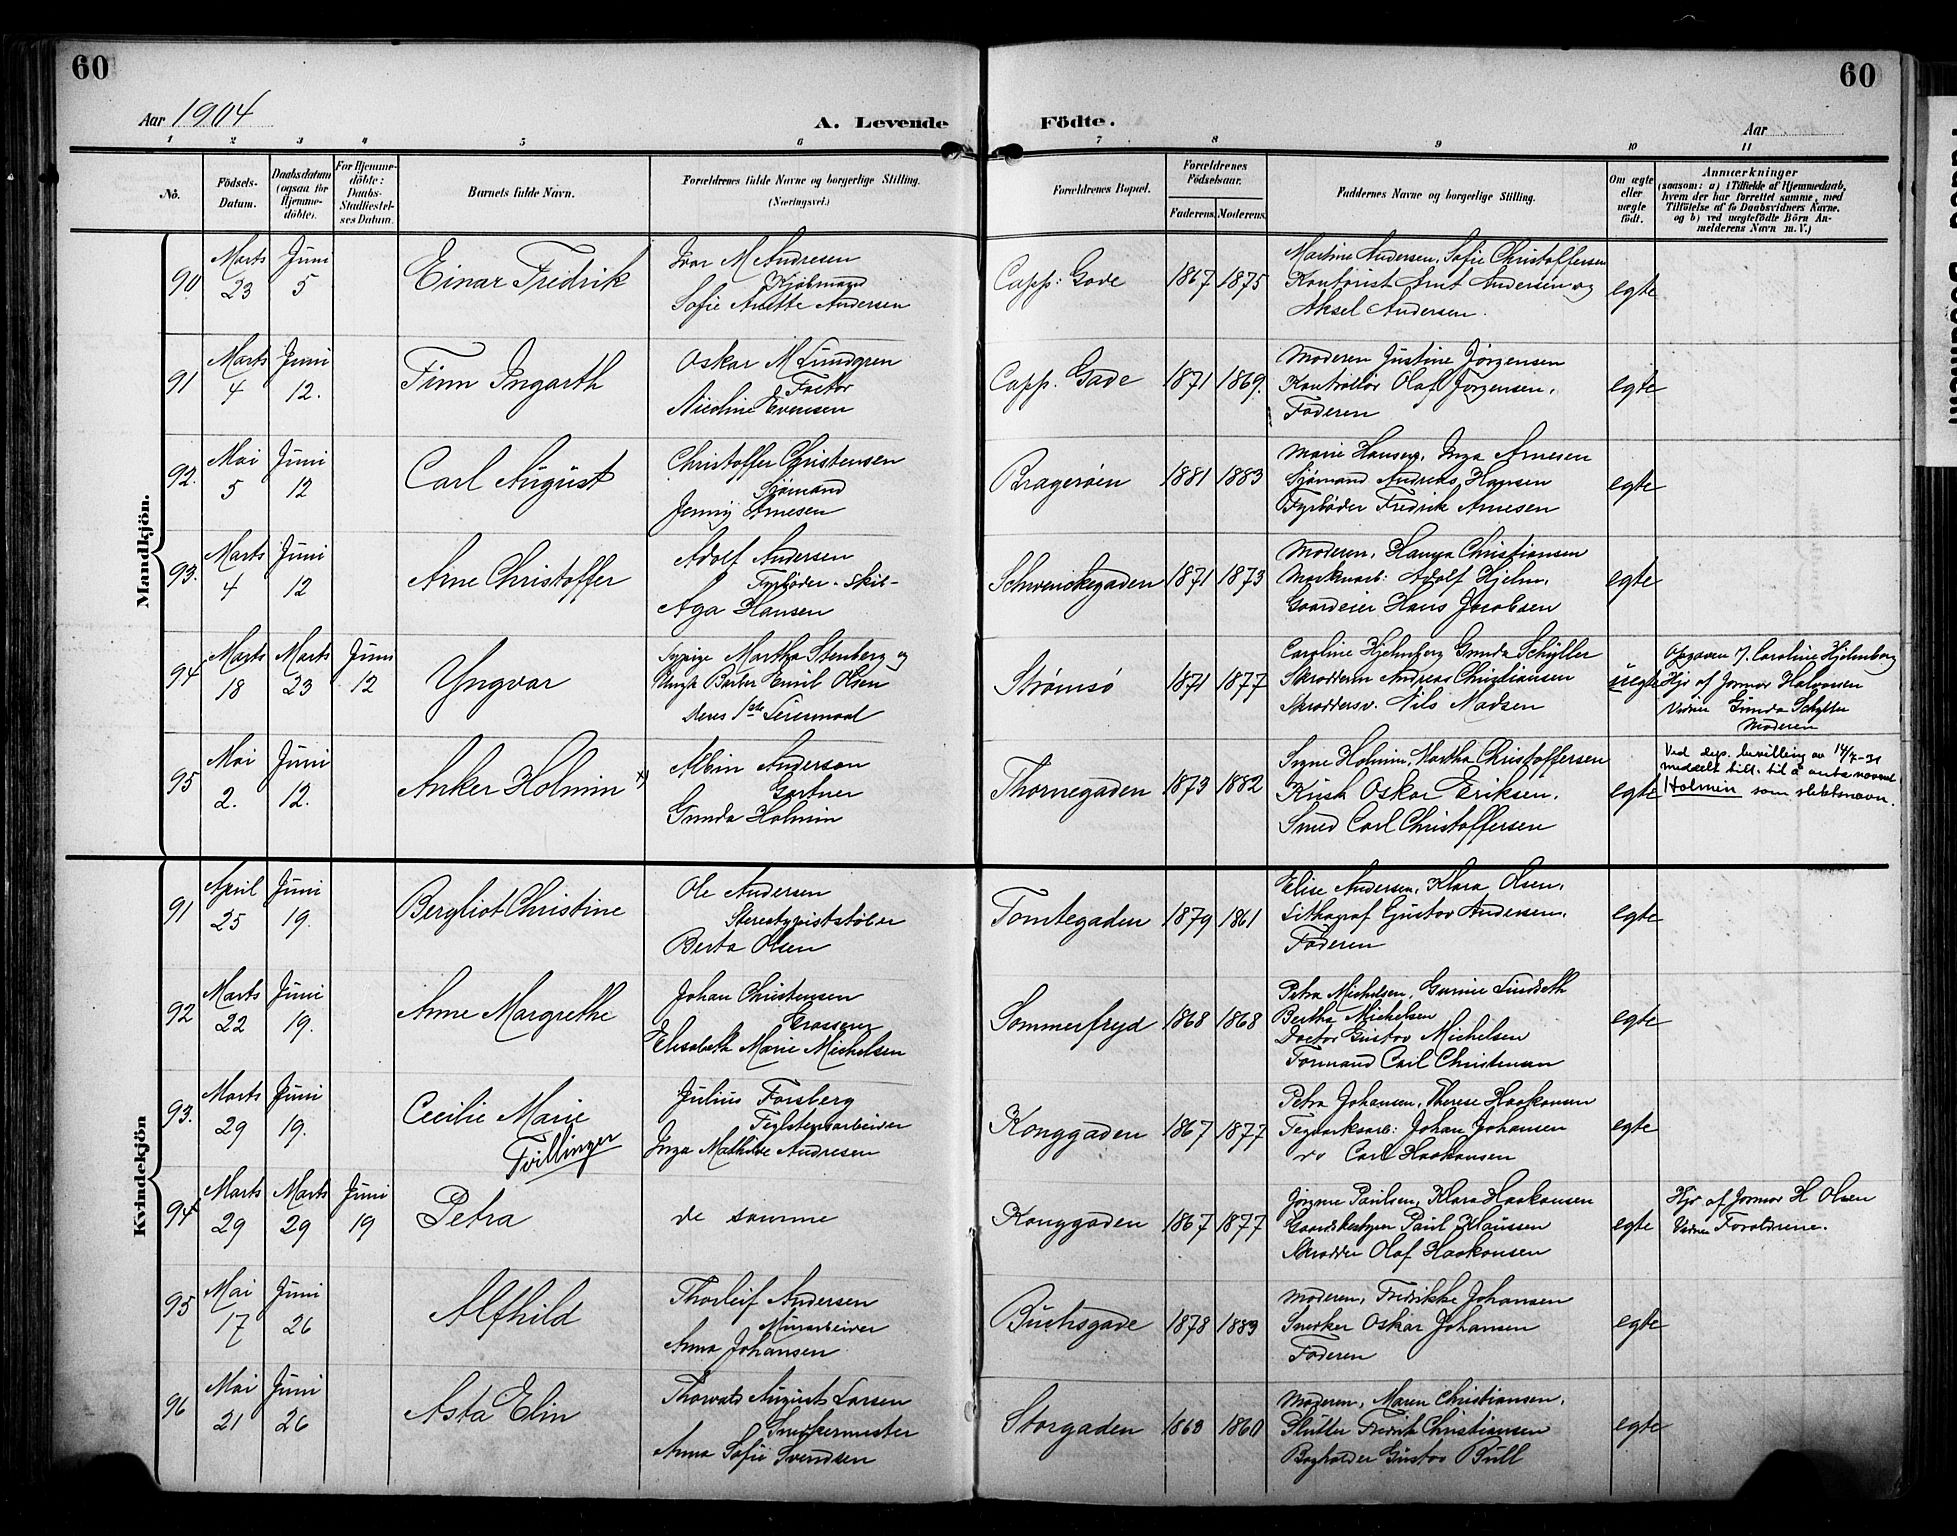 60
60
Aar 1904
A. Levende Födte.
Aar
1 2 3 4 5 6 7 8 9 10 11
No.
Födsels-Datum.
Daabsdatum (ogsaa for Hjemme-döbte).
For Hjemme-döbte: Daabs-Stadfæstel-ses Datum.
Barnets fulde Navn.
Forældrenes fulde Navne og borgerlige Stilling. (Næringsvei.)
Forældrenes Bopæl.
Forældrenes Födselsaar.
Faderens. Moderens.
Faddernes Navne og borgerlige Stilling.
Om ægte eller uægte födt.
Anmærkninger
(saasom: a) i Tilfælde af Hjemmedaab,
hvem der har forrettet samme, med
Tilföielse af to Daabsvidners Navne.
og b) ved uægtefödte Börn An-
melderens Navn m. V.)
Mandkjön.
90 Marts 23 Juni 5
Einar Fredrik
Ivar M Andresen
Kjøbmand
Sofie Anette Andersen
Capp: Gade 1867 1875
Martine Andersen, Sofie Christoffersen
Kontorist Arnt Andersen og
Aksel Andersen.
egte
91 Marts 4 Juni 12.
Finn Ingarth
Oskar M Lundgren
Factor
Nicoline Evensen
Capp. Gade 1871 1869.
Moderen Justine Jørgensen
Kontrollør Olaf Jørgensen,
Faderen
egte
92. Mai 5 Juni 12
Carl August
Christoffer Christensen
Sjømand
Jenny Arnesen
Bragerøen 1881 1883
Marie Hansen, Inga Arnesen
Sjømand Andreas Hansen
Fyrbøder Fredrik Arnesen
egte
93. Marts 4 Juni 12
Arne Christoffer
Adolf Andersen
Fyrbøder - Skib-
Aga Hansen
Schwenckegaden 1871 1873
Moderen, Hanna Christiansen
Adolf Hjelm,
Gaardeier Hans Jacobsen
egte
94 Marts 18 Marts 23 Juni 12
Yngvar
Sypige Martha Stenberg og
Ungk Barber Emil Olsen
deres 1ste Leiermaal
Strømsø 1871 1877
Caroline Hjelmborg Gunda Schyller
Skrædderm Andreas Christiansen
Skræddersv. Nils Madsen
uegte
Opgaven J. Caroline Hjelmborg
Hjd af Jormor Halvorsen
Vidner Gunda Schyller
Moderen
95 Mai 2. Juni 12.
Anker Holmin x)
Albin Anderson
Gartner
Gunda Holmin
Thornegaden 1873 1882
Signe Holmin, Martha Christoffersen
Kusk Oskar Eriksen.
Smed Carl Christoffersen
egte
Ved dep. bevilling av 14/7-31
meddelt till. til å anta navnet
Holmen som slektsnavn.
Kvindekjön
91 April 25 Juni 19.
Bergliot Christine
Ole Andersen
Stereotypiststøber
Berta Olsen
Tomtegaden 1879 1861
Elise Andersen, Klara Olsen,
Lithograf Gustav Andersen,
Faderen
egte
92 Marts 22 Juni 19.
Anne Margrethe
Johan Christensen
Brasserer
Elisabeth Marie Michelsen
Sommerfryd 1868 1868
Petra Michelsen, Gunnie Lindseth
Bertha Michelsen
Factor Gustav Michelsen
Formand Carl Christensen
egte
93. Marts 29 Juni 19.
Cecilie Marie
Tvillinger
Julius Forsberg
Teglstensarbeider
Inga Mathilde Andresen
Konggaden 1867 1877
Petra Johansen, Therese Haakonsen
Teglværksarb: Johan Johansen
do Carl Haakonsen
egte
94 Marts 29 Marts 29 Juni 19
Petra
de samme
Konggaden 1867 1877
Jørgine Paulsen, Klara Haakonsen
Gaardsbestyrer Paul Klaussen
Skrædder Olaf Haakonsen
egte
Hjd af Jormor H Olsen
Vidner Forældrene.
95 Mai 17 Juni 26
Alfhild
Thorleif Andersen
Murarbeider
Anna Johansen
Buchsgade 1878 1883
Moderen, Fredrikke Johansen
Snedker Oskar Johansen
Faderen
egte
96 Mai 21 Juni 26
Asta Elin
Thorvald August Larsen
Snedkermester
Anna Sofie Svendsen
Storgaden 1863 1860
Moderen, Maren Christiansen,
Slutter Fredrik Christiansen
Bogholder Gustav Bull
egte